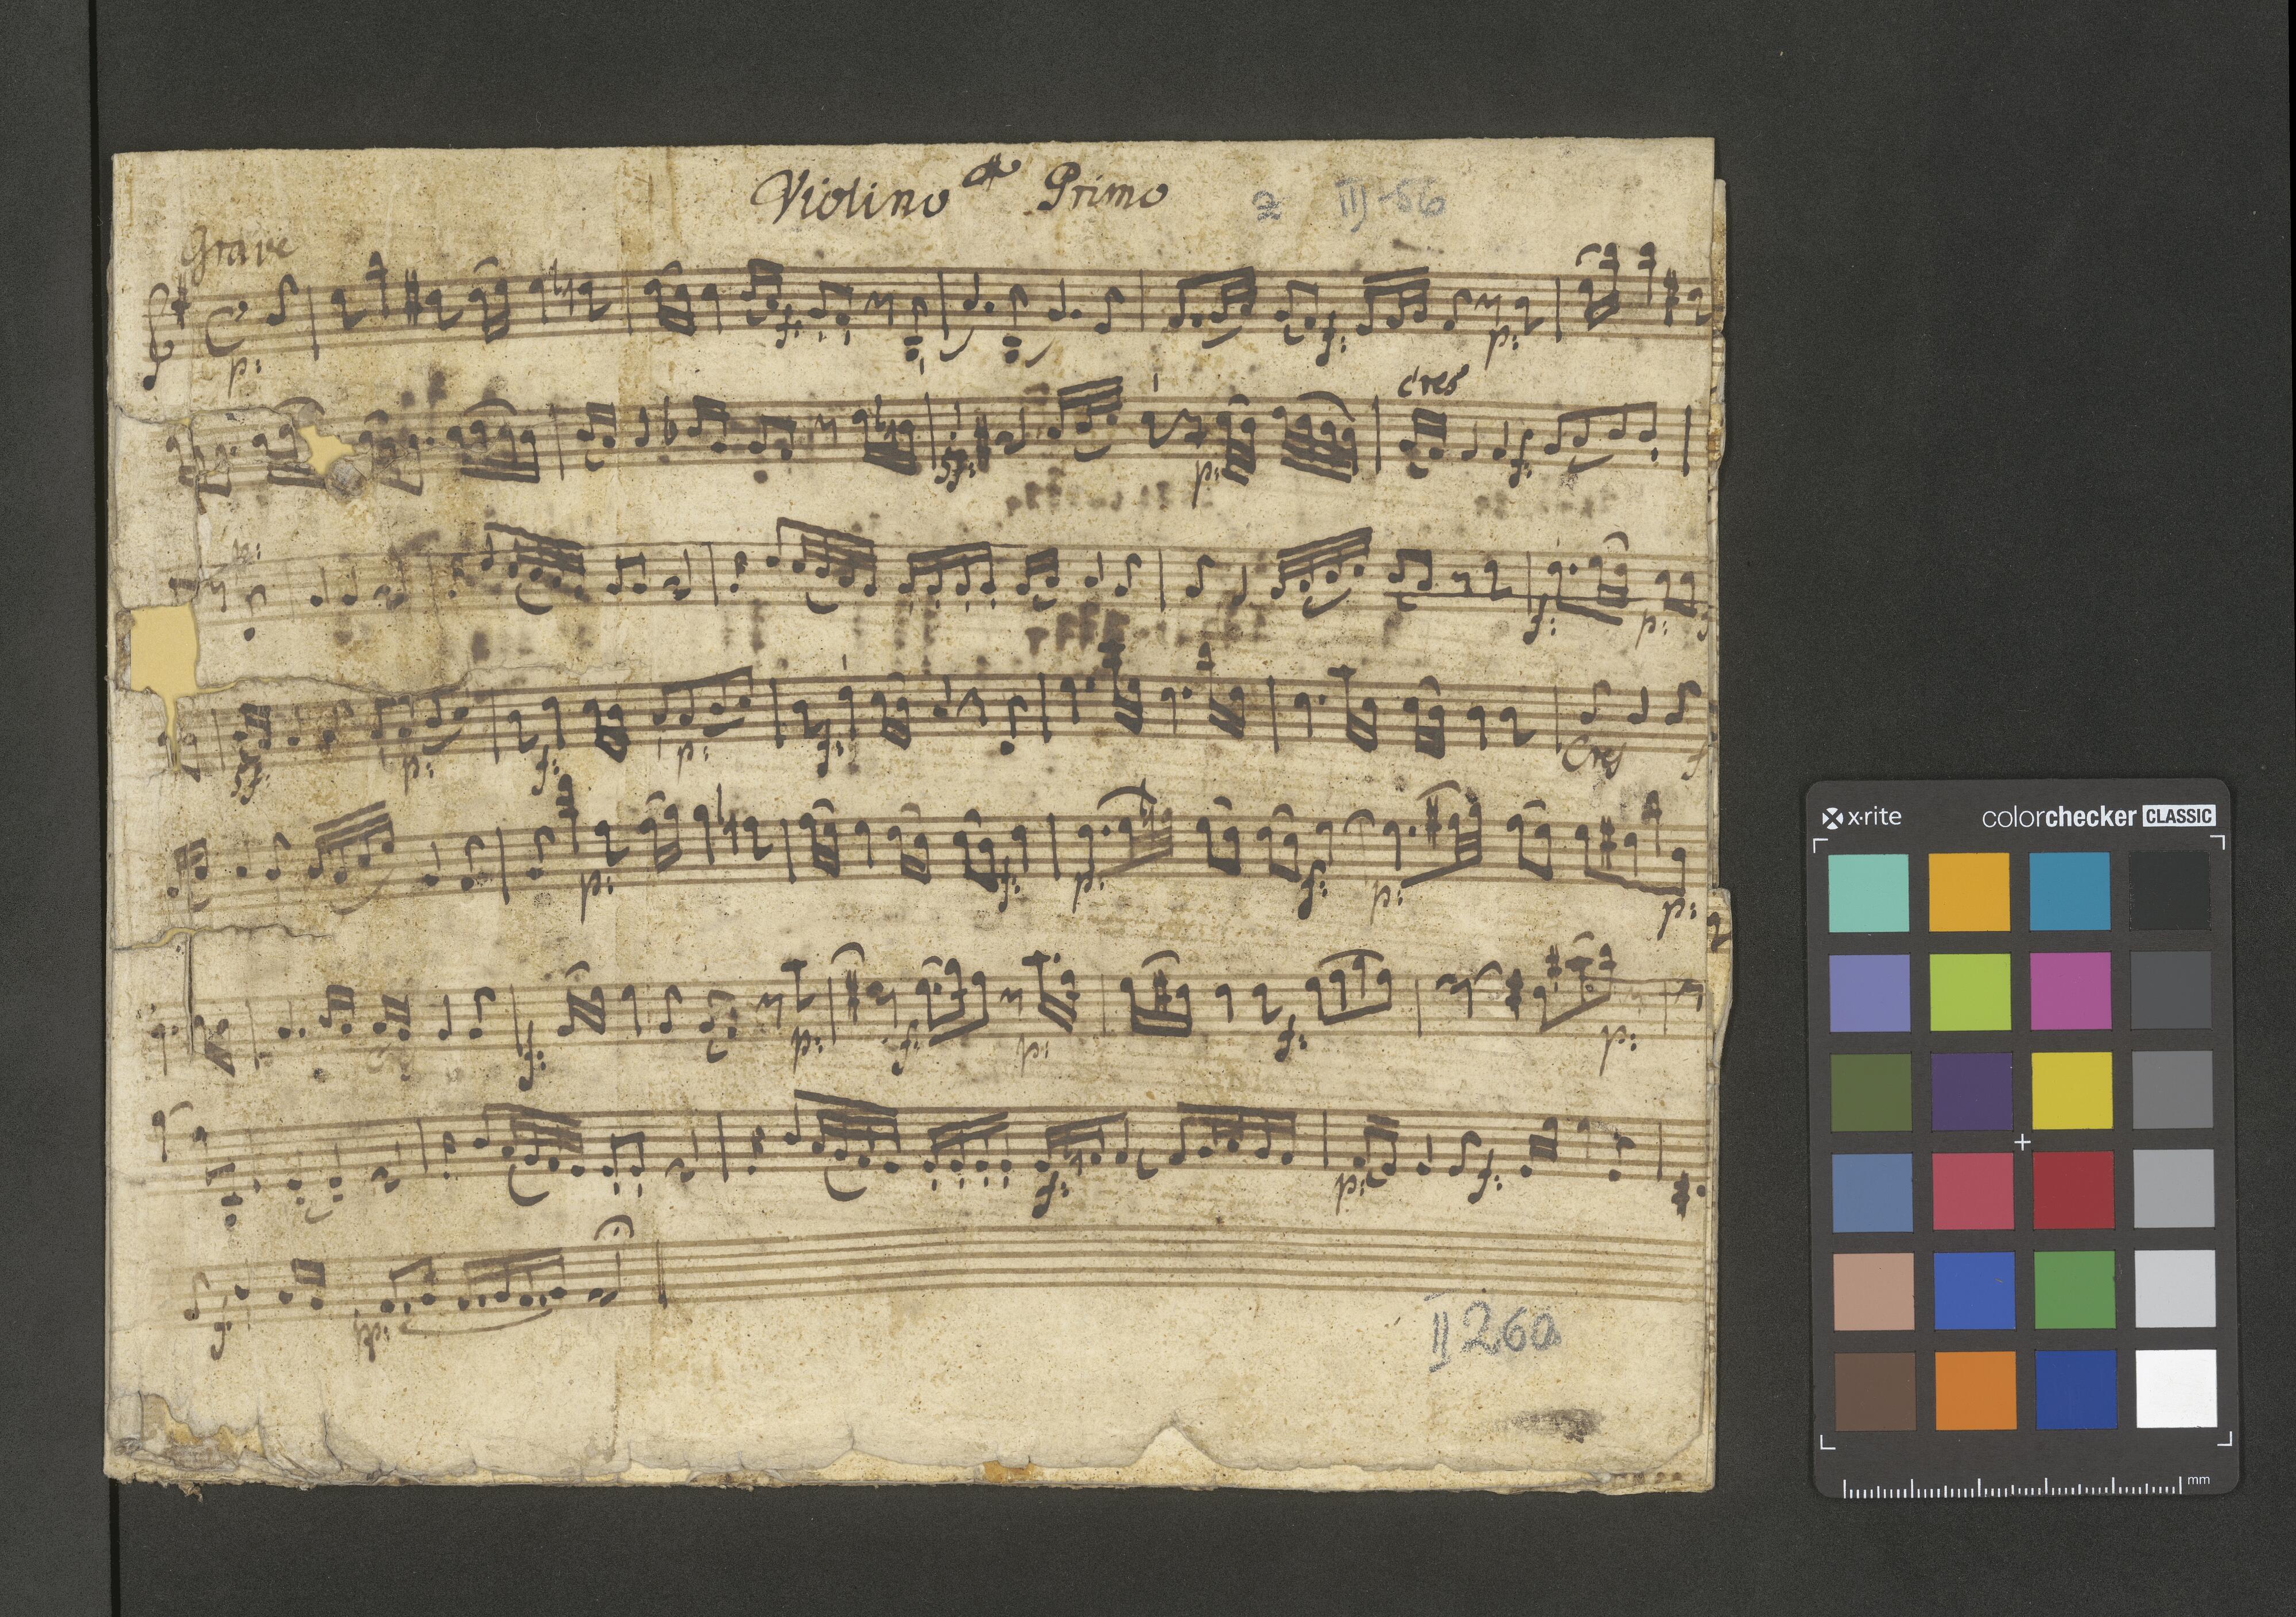 Violino Primo 2 III-56
Grave
p: f: f: p:
cres
sf: p: f:
p:
f: p: f
sf: p: f: p: f: Cres f
p: f: p: f: p: p:
f: p: f: p: f: p:
f: p: f:
f: p:
II 260
x·rite colorchecker CLASSIC
mm